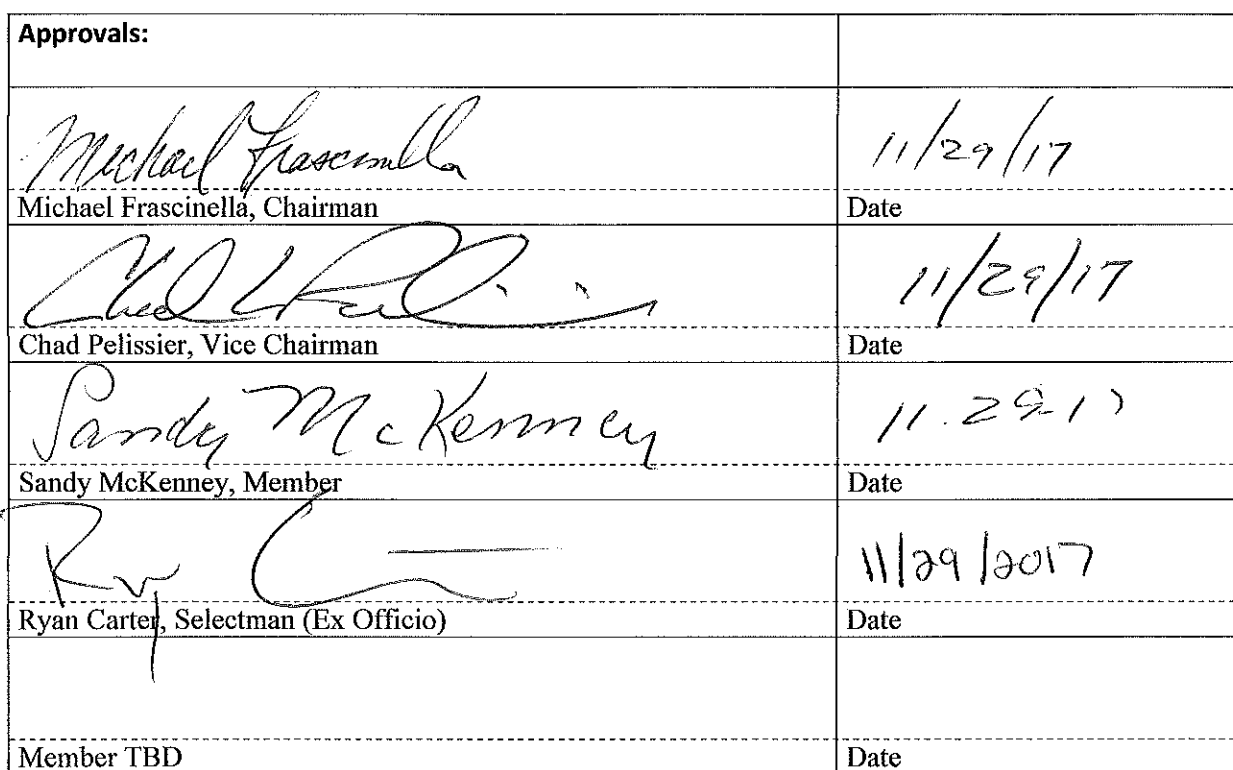 Approvals:
Michael Frascinella 11/29/17
Michael Frascinella, Chairman Date
Chad Pelissier 11/29/17
Chad Pelissier, Vice Chairman Date
Sandy McKenney 11.29-17
Sandy McKenney, Member Date
Ryan C 11/29/2017
Ryan Carter, Selectman (Ex Officio) Date
Member TBD Date